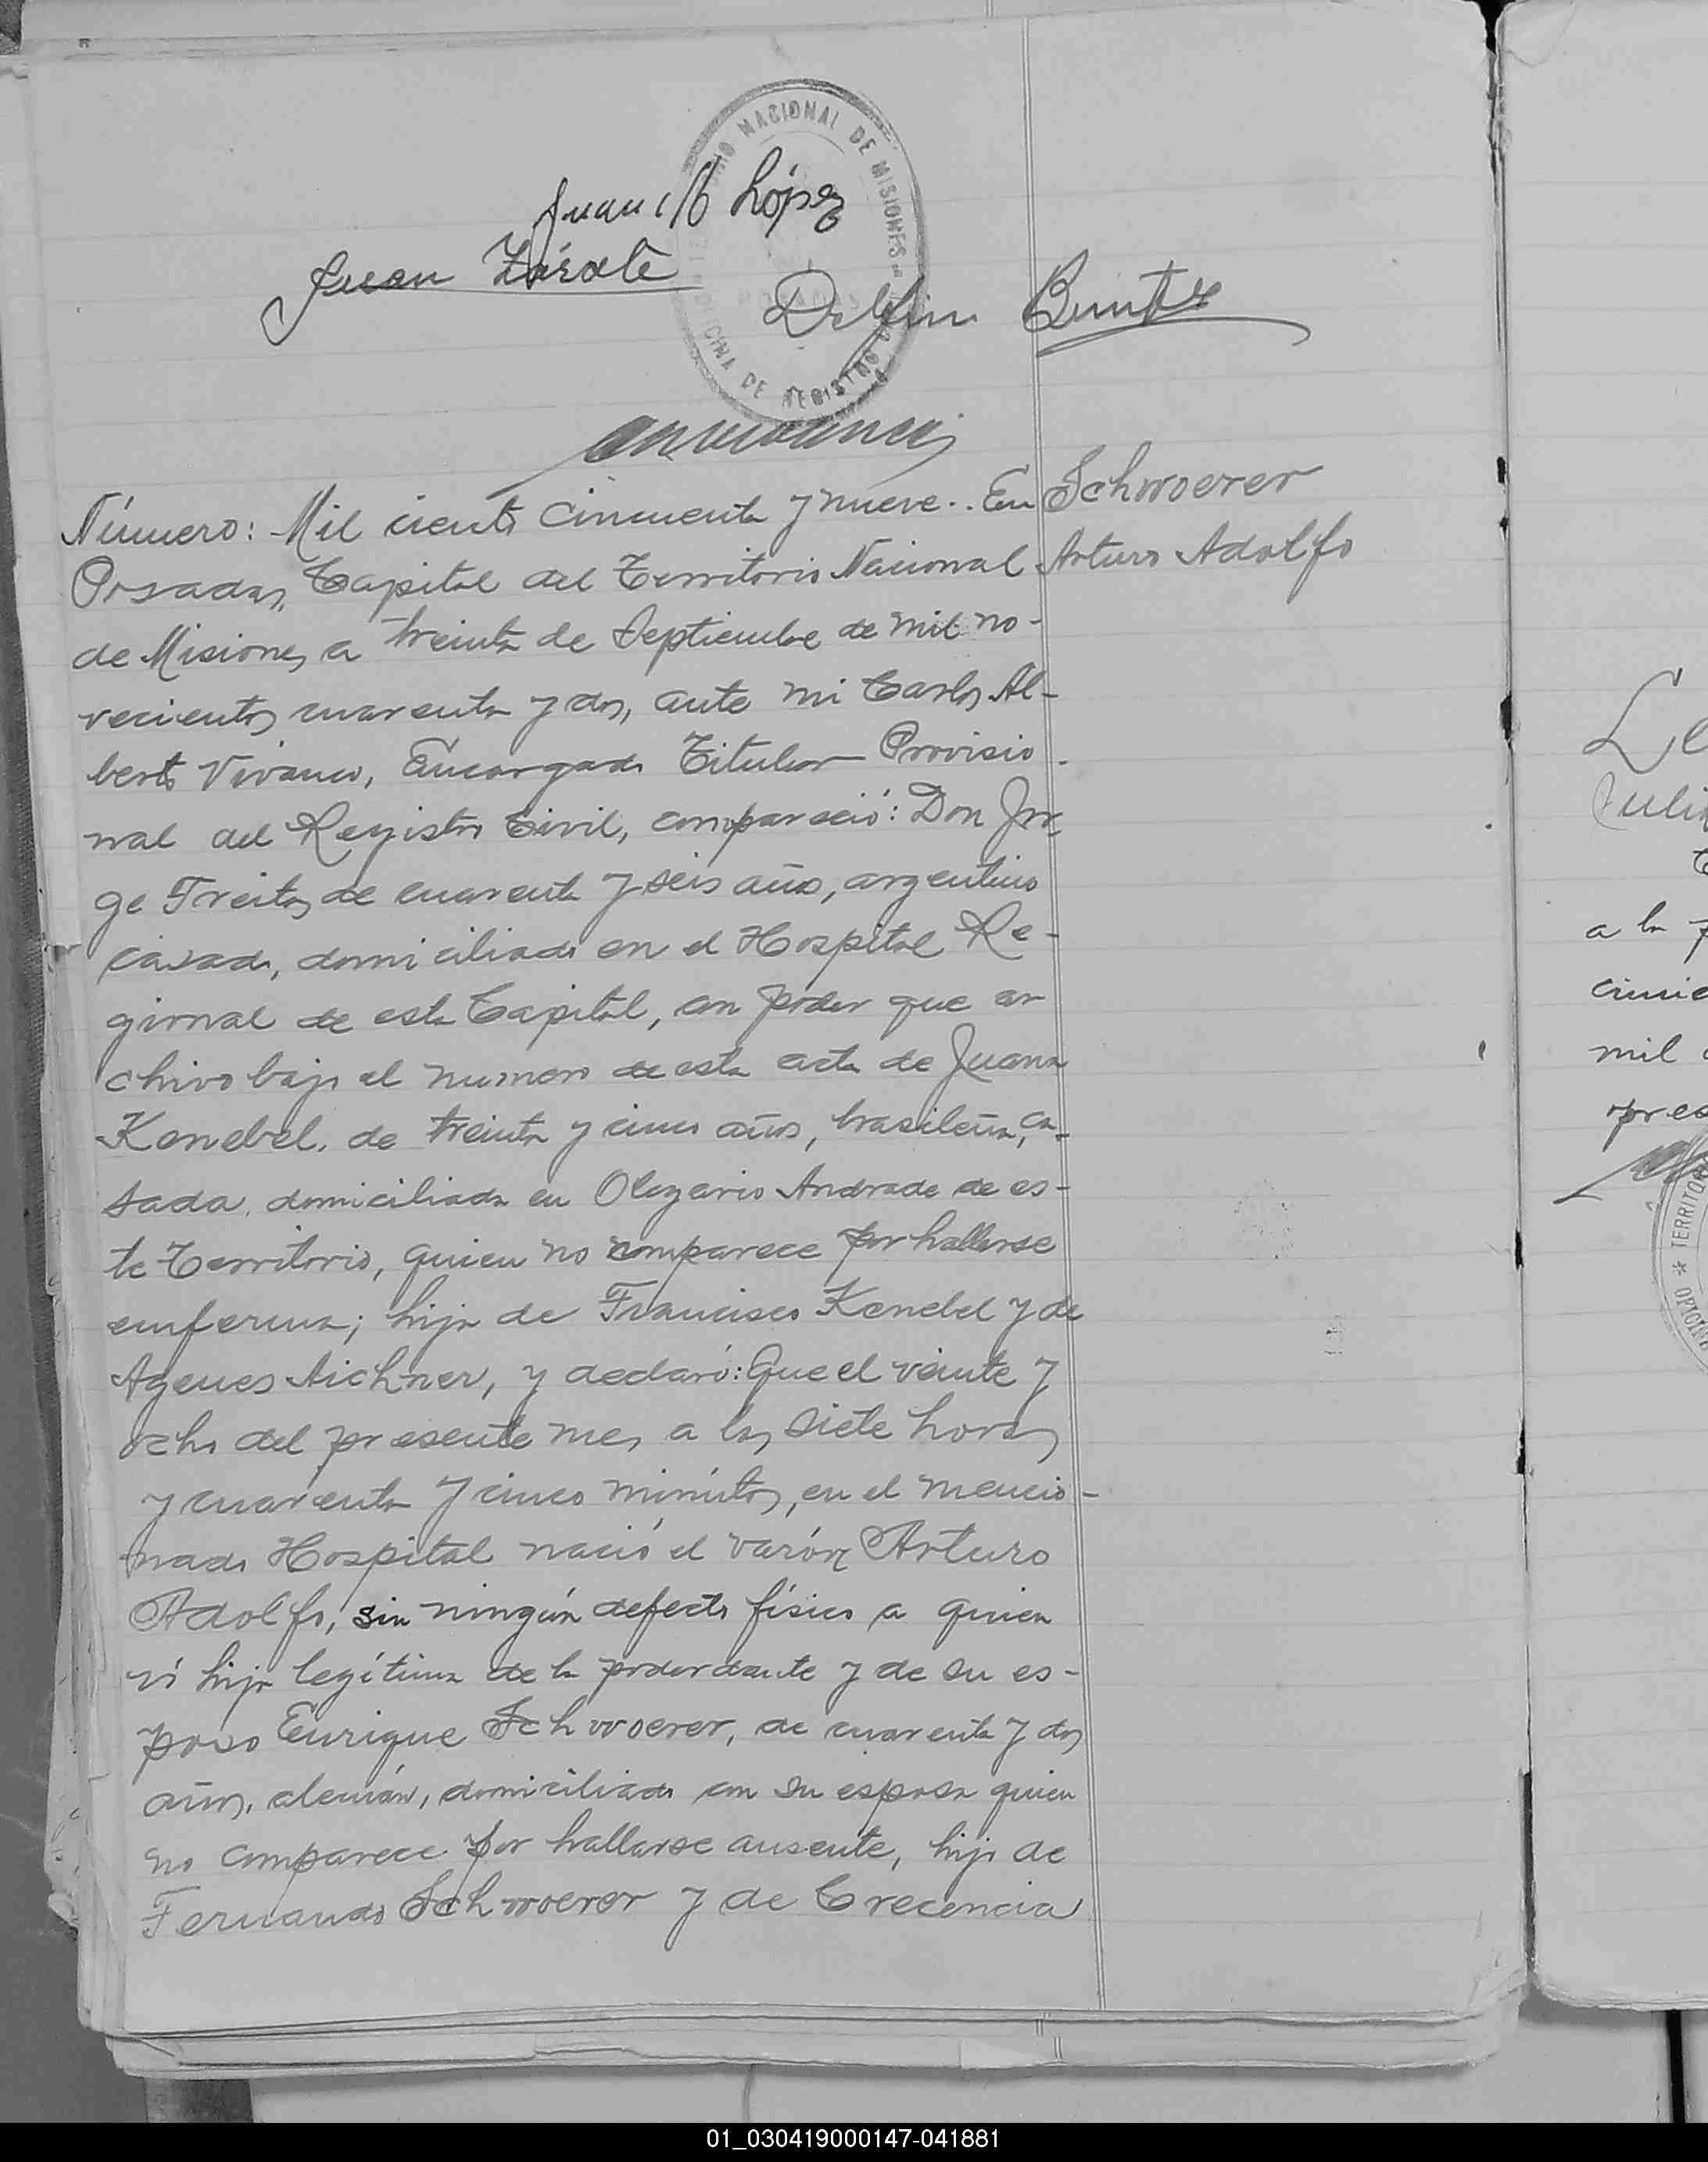 TERRITORIO NACIONAL DE MISIONES
OFICINA DE REGISTRO
POSADAS
Juan López
Juan Zárate
Delfin
Número: Mil ciento cincuenta y nueve.. En
Schwoerer
Posadas, Capital del Territorio Nacional
Arturo Adolfo
de Misiones, a treinta de Septiembre de mil no-
vecientos cuarenta y dos, ante mi Carlos Al-
berto Vivanco, Encargado Titular Provisio-
nal del Registro Civil, compareció: Don Jor-
ge Freitas, de cuarenta y seis años, argentino
casado, domiciliado en el Hospital Re-
gional de esta Capital, con poder que ar
chivo bajo el numero de esta acta de Juana
Kenebel, de treinta y cinco años, brasileña, ca-
sada, domiciliada en Olegario Andrade de es-
te Territorio, quien no comparece por hallarse
enferma; hija de Francisco Kenebel y de
Agenes Aichner, y declaró: Que el veinte y
ocho del presente mes, a las siete horas
y cuarenta y cinco minutos, en el mencio-
nado Hospital nació el varón Arturo
Adolfo, sin ningún defecto físico a quien
ví hijo legítimo de la poderdante y de su es-
poso Enrique Schwoerer, de cuarenta y dos
años, alemán, domiciliado con su esposa quien
no comparece por hallarse ausente, hijo de
Fernando Schwoerer y de Crecencia
a la
mil
TERRITOR
OFICINA
01_030419000147-041881